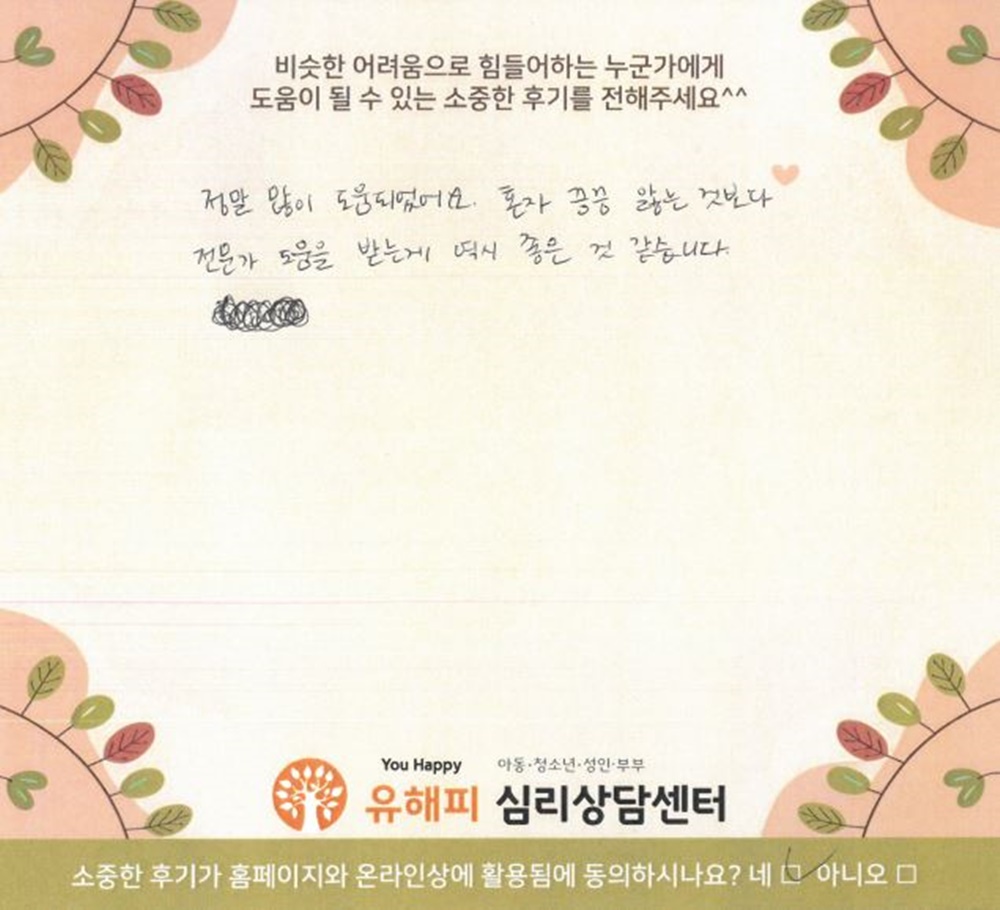 비슷한 어려움으로 힘들어하는 누군가에게
도움이 될 수 있는 소중한 후기를 전해주세요^^
정말 많이 도움되었어요. 혼자 끙끙 앓는 것보다
전문가 도움을 받는게 역시 좋은 것 같습니다.
You Happy 아동·청소년·성인·부부
유해피 심리상담센터
소중한 후기가 홈페이지와 온라인상에 활용됨에 동의하시나요? 네 ☑ 아니오 □